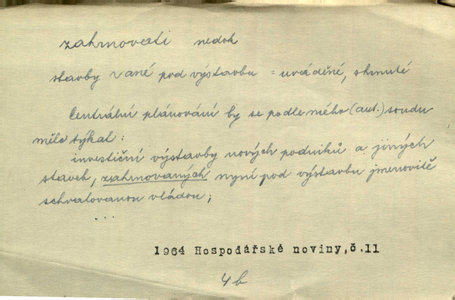 zahrnovati nedok
stavby rané pod výstavbu = uváděné, shrnuté
Centrální plánování by se podle mého (aut.) soudu
mělo týkat:
investiční výstavby nových podniků a jiných
staveb, zahrnovaných nyní pod výstavbu jmenovitě
schvalovanou vládou;
...
1964 Hospodářské noviny,č.11
4b